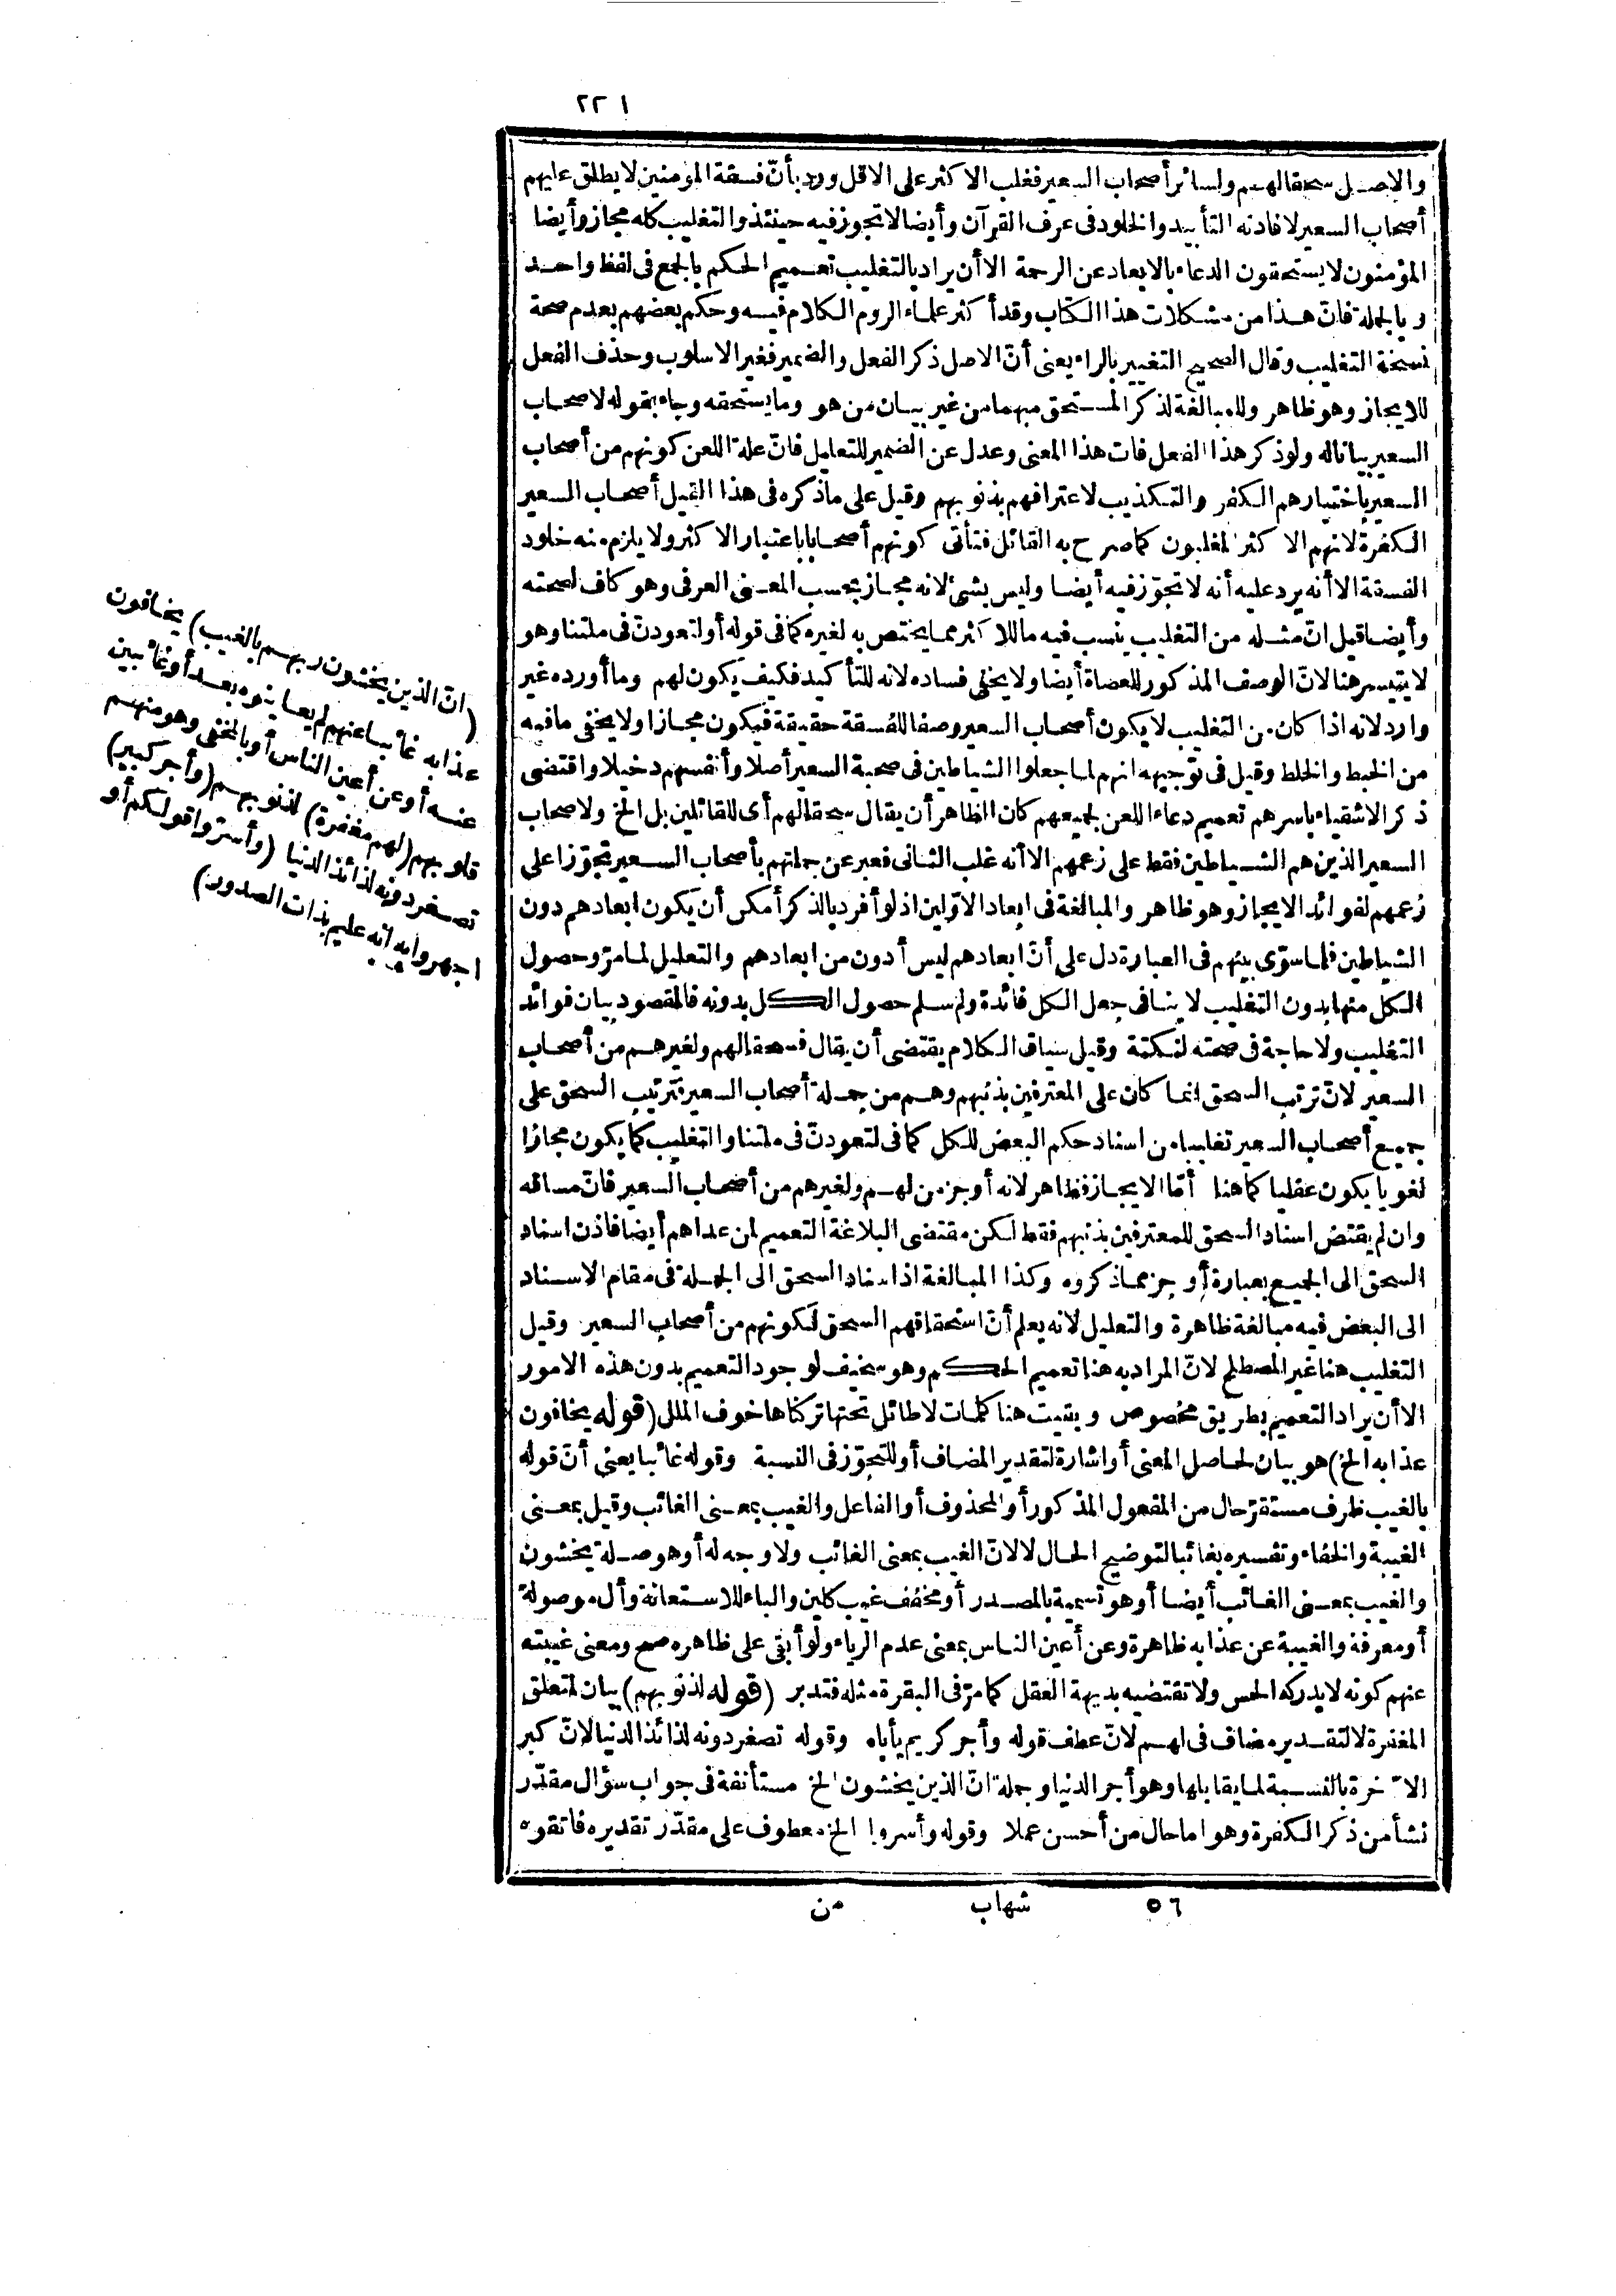 ٢٢١
والاصل سحقا لهم ولسائر أصحاب السعير فغلب الاكثر على الاقل ورد بأنّ فسقة المؤمنين لا يطلق عليهم
أصحاب السعير لافادته التأبيد والخلود فى عرف القرآن وأيضا لا تجوز فيه حينئذ والتغليب كله مجاز وأيضا
المؤمنون لا يستحقون الدعاء بالابعاد عن الرحمة الا أن يراد بالتغليب تعميم الحكم بالجمع فى لفظ واحد
وبالجملة فانّ هذا من مشكلات هذا الكتاب وقد أكثر علماء الروم الكلام فيه وحكم بعضهم بعدم صحة
نسخة التغليب وقال الصحيح التغيير بالراء يعنى أنّ الاصل ذكر الفعل والضمير فغير الاسلوب وحذف الفعل
للايجاز وهو ظاهر وللمبالغة لذكر المستحق مبهما من غير بيان من هو وما يستحقه وجاء بقوله لاصحاب
السعير بيانا له ولو ذكر هذا الفعل فات هذا المعنى وعدل عن الضمير للتعليل فانّ علة اللعن كونهم من أصحاب
السعير باختيارهم الكفر والتكذيب لاعترافهم بذنوبهم وقيل على ما ذكره فى هذا القيل أصحاب السعير
الكفرة لانهم الاكثر المغلبون كما صرح به القائل فتأتى كونهم أصحابا باعتبار الاكثر ولا يلزم منه خلود
الفسقة الا أنه يرد عليه أنه لا تجوّز فيه أيضا وليس بشئ لانه مجاز بحسب المعنى العرفى وهو كاف لصحته
وأيضا قيل انّ مثله من التغليب ينسب فيه ما للاكثر مما يختص به لغيره كما فى قوله أو لتعودنّ فى ملتنا وهو
لا يتيسر هنا لانّ الوصف المذكور للعصاة أيضا ولا يخفى فساده لانه للتأكيد فكيف يكون لهم وما أورده غير
وارد لانه اذا كان من التغليب لا يكون أصحاب السعير وصفا للفسقة حقيقة فيكون مجازا ولا يخفى ما فيه
من الخبط والخلط وقيل فى توجيهه انهم لما جعلوا الشياطين فى صحبة السعير أصلا وأنفسهم دخيلا واقتضى
ذكر الاشقياء باسرهم تعميم دعاء اللعن لجميعهم كان الظاهر أن يقال سحقا لهم أى للقائلين بل الخ ولاصحاب
السعير الذين هم الشياطين فقط على زعمهم الا أنه غلب الثانى فعبر عن جملتهم بأصحاب السعير تجوّزا على
زعمهم لفوائد الايجاز وهو ظاهر والمبالغة فى ابعاد الاوّلين اذ لو أفرد بالذكر أمكن أن يكون ابعادهم دون
الشياطين فلما سوّى بينهم فى العبارة دل على أنّ ابعادهم ليس أدون من ابعادهم والتعليل لما مرّ وحصول
الكل منها بدون التغليب لا ينافى جعل الكل فائدة ولم سلم حصول الكل بدونه فالمقصود بيان فوائد
التغليب ولا حاجة فى صحته لنكتة وقيل سياق الكلام يقتضى أن يقال فسحقا لهم ولغيرهم من أصحاب
السعير لانّ ترتب السحق انما كان على المعترفين بذنبهم وهم من جملة أصحاب السعير فترتيب السحق على
جميع أصحاب السعير تغليبا من اسناد حكم البعض للكل كما فى لتعودنّ فى ملتنا والتغليب كما يكون مجازا
لغويا يكون عقليا كما هنا أمّا الايجاز فظاهر لانه أوجز من لهم ولغيرهم من أصحاب السعير فانّ مساقه
وان لم يقتض اسناد السحق للمعترفين بذنبهم فقط لكن مقتضى البلاغة التعميم لمن عداهم أيضا فاذن اسناد
السحق الى الجميع بعبارة أوجز مما ذكروه وكذا المبالغة اذ اسناد السحق الى الجملة فى مقام الاسناد
الى البعض فيه مبالغة ظاهرة والتعليل لانه يعلم أنّ استحقاقهم السحق لكونهم من أصحاب السعير وقيل
التغليب هنا غير المصطلح لانّ المراد به هنا تعميم الحكم وهو سخيف لوجود التعميم بدون هذه الامور
الا أن يراد التعميم بطريق مخصوص وبقيت هنا كلمات لا طائل تحتها تركناها خوف الملل (قوله يخافون
عذابه الخ) هو بيان لحاصل المعنى أو اشارة لتقدير المضاف أو للتجوّز فى النسبة وقوله غائبا يعنى أنّ قوله
بالغيب ظرف مستقرّ حال من المفعول المذكور أو المحذوف أو الفاعل والغيب بمعنى الغائب وقيل بمعنى
الغيبة والخفاء وتفسيره بغائبا لتوضيح الحال لا لانّ الغيب بمعنى الغائب ولا وجه له أو هو صلة يخشون
والغيب بمعنى الغائب أيضا أو هو تسمية بالمصدر أو مخفف غيب كلين والباء للاستعانة وأل موصولة
أو معرفة والغيبة عن عذابه ظاهرة وعن أعين الناس بمعنى عدم الرياء ولو أبقى على ظاهره صح ومعنى غيبته
عنهم كونه لا يدركه الحس ولا تقتضيه بديهة العقل كما مرّ فى البقرة مثله فتدبر (قوله لذنوبهم) بيان لمتعلق
المغفرة لا لتقدير مضاف فى لهم لانّ عطف قوله وأجر كريم يأباه وقوله تصغر دونه لذائذ الدنيا لانّ كبر
الآخرة بالنسبة لما يقابلها وهو أجر الدنيا وجملة انّ الذين يخشون الخ مستأنفة فى جواب سؤال مقدّر
نشأ من ذكر الكفرة وهو اما حال من أحسن عملا وقوله وأسروا الخ معطوف على مقدّر تقديره فاتقوه
(انّ الذين يخشون ربهم بالغيب) يخافون
عذابه غائبا عنهم لم يعاينوه بعد أو غائبين
عنه أو عن أعين الناس أو بالمخفى وهو منهم
قلوبهم (لهم مغفرة) لذنوبهم (وأجر كبير)
تصغر دونه لذائذ الدنيا (وأسرّوا قولكم أو
اجهروا به انه عليم بذات الصدور)
٥٦ شهاب من